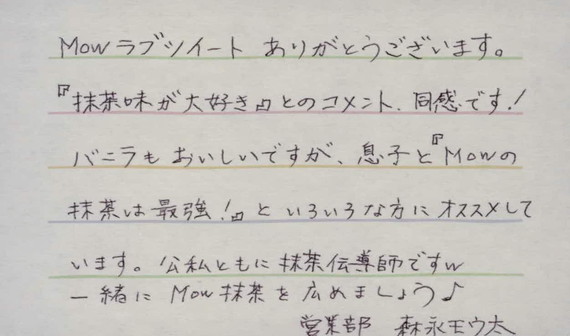 Mowラブツイート ありがとうございます。
『抹茶味が大好き』とのコメント、同感です!
バニラもおいしいですが、息子と『Mowの
抹茶は最強!』といろいろな方にオススメして
います。公私ともに抹茶伝導師ですw
一緒にMow抹茶を広めましょう♪
営業部 森永モウ太